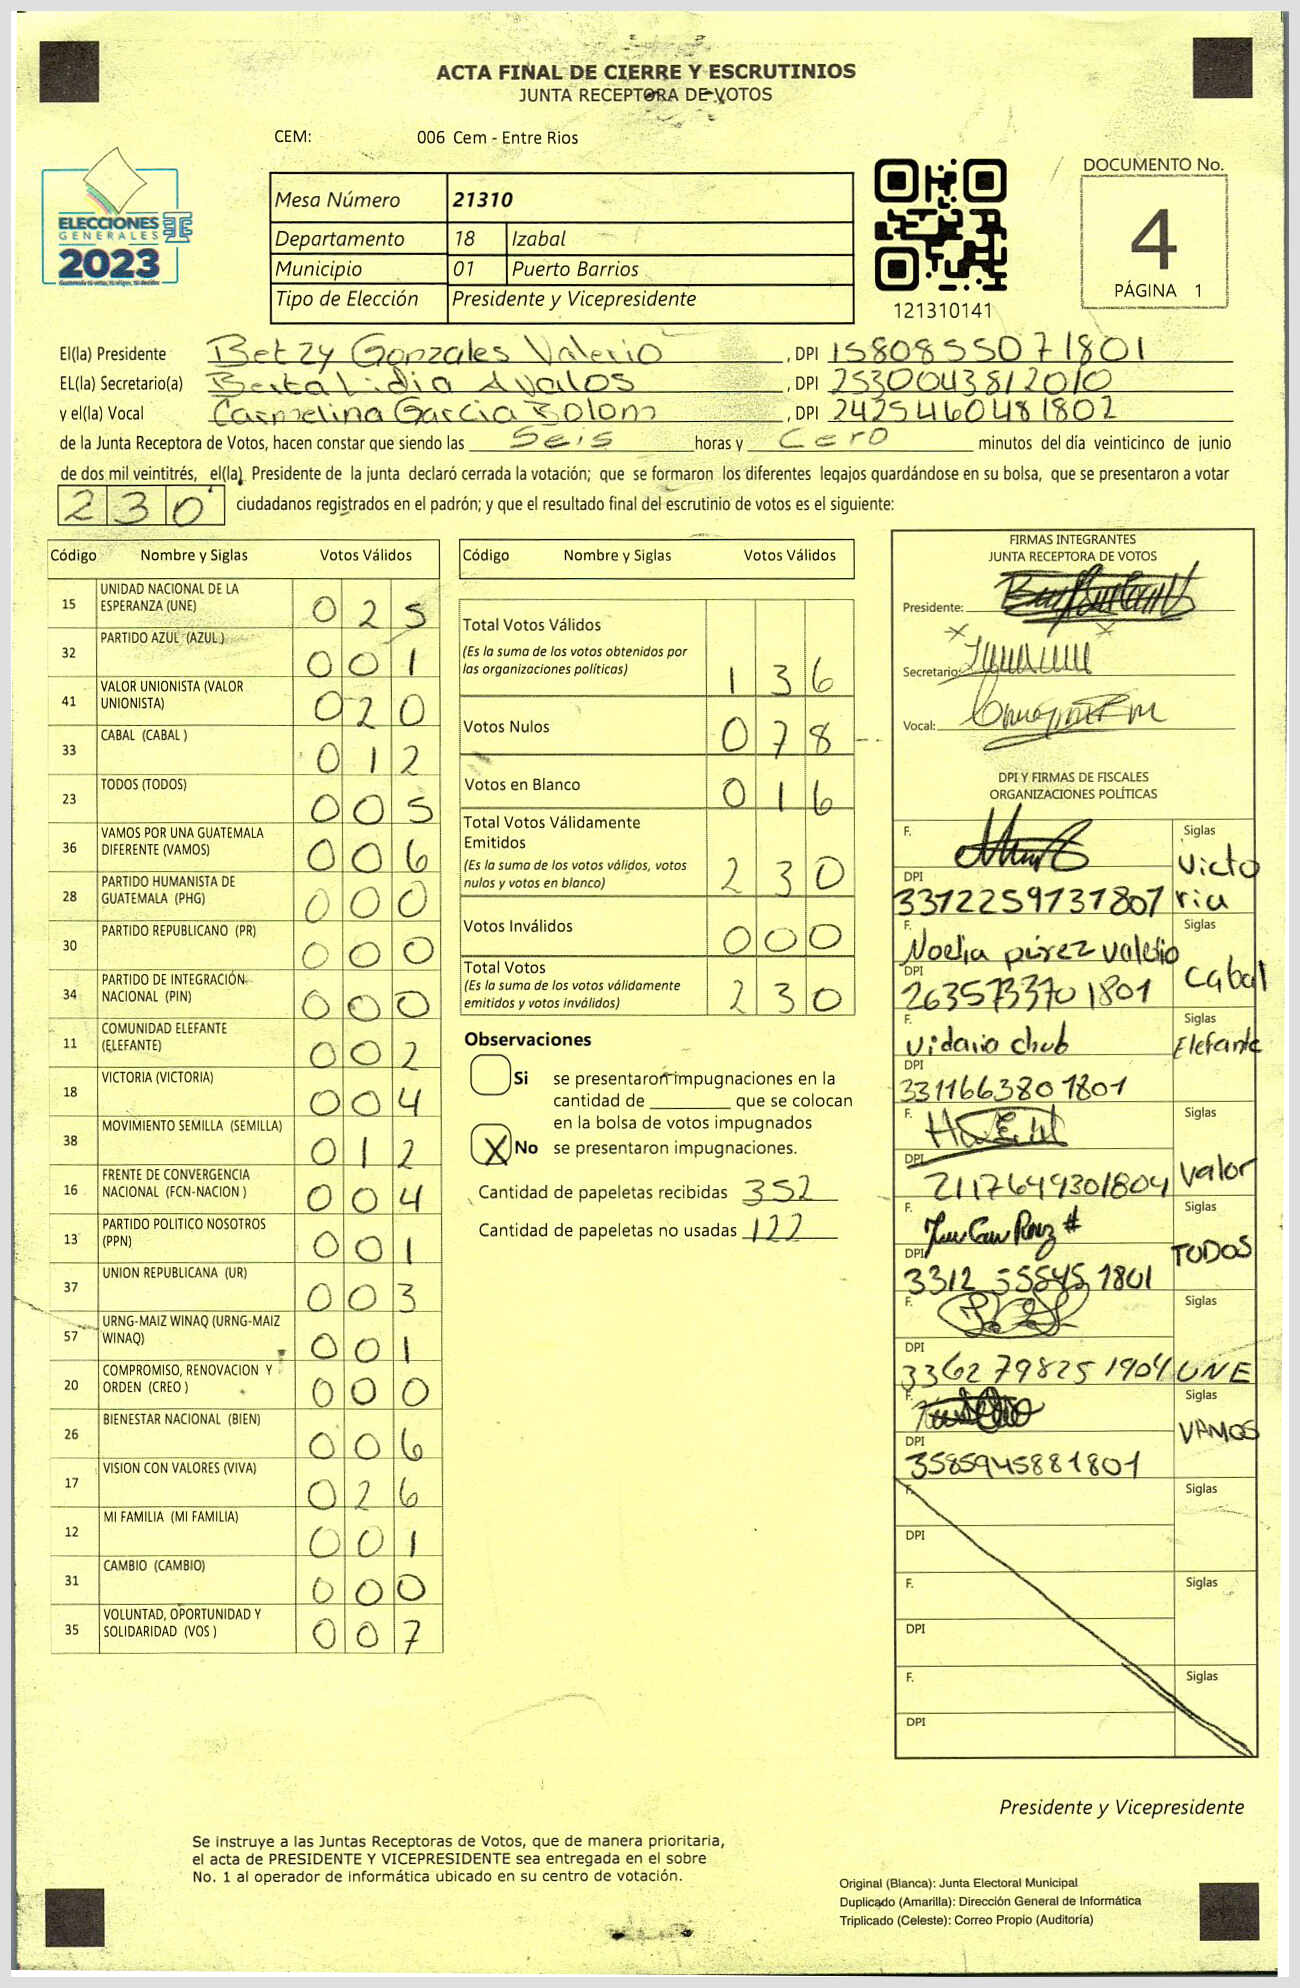 ACTA FINAL DE CIERRE Y ESCRUTINIOS
JUNTA RECEPTORA DE VOTOS
CEM: 006 Cem - Entre Rios
ELECCIONES
GENERALES
2023
Mesa Número 21310
Departamento 18 Izabal
Municipio 01 Puerto Barrios
Tipo de Elección Presidente y Vicepresidente
121310141
DOCUMENTO No.
4
PÁGINA 1
El(la) Presidente Betzy Gonzales Valerio, DPI 1580855071801
EL(la) Secretario(a) Berta Lidia Avalos, DPI 2530043812010
y el(la) Vocal Carmelina Garcia Bolom, DPI 2425446048 1802
de la Junta Receptora de Votos, hacen constar que siendo las Seis horas y Cero minutos del día veinticinco de junio
de dos mil veintitrés, el(la) Presidente de la junta declaró cerrada la votación; que se formaron los diferentes legajos guardándose en su bolsa, que se presentaron a votar
230 ciudadanos registrados en el padrón; y que el resultado final del escrutinio de votos es el siguiente:
Código Nombre y Siglas Votos Válidos
15 UNIDAD NACIONAL DE LA ESPERANZA (UNE) 025
32 PARTIDO AZUL (AZUL ) 001
41 VALOR UNIONISTA (VALOR UNIONISTA) 020
33 CABAL (CABAL ) 012
23 TODOS (TODOS) 005
36 VAMOS POR UNA GUATEMALA DIFERENTE (VAMOS) 006
28 PARTIDO HUMANISTA DE GUATEMALA (PHG) 000
30 PARTIDO REPUBLICANO (PR) 000
34 PARTIDO DE INTEGRACIÓN NACIONAL (PIN) 000
11 COMUNIDAD ELEFANTE (ELEFANTE) 002
18 VICTORIA (VICTORIA) 004
38 MOVIMIENTO SEMILLA (SEMILLA) 012
16 FRENTE DE CONVERGENCIA NACIONAL (FCN-NACION ) 004
13 PARTIDO POLITICO NOSOTROS (PPN) 001
37 UNION REPUBLICANA (UR) 003
57 URNG-MAIZ WINAQ (URNG-MAIZ WINAQ) 001
20 COMPROMISO, RENOVACION Y ORDEN (CREO ) 000
26 BIENESTAR NACIONAL (BIEN) 006
17 VISION CON VALORES (VIVA) 026
12 MI FAMILIA (MI FAMILIA) 001
31 CAMBIO (CAMBIO) 000
35 VOLUNTAD, OPORTUNIDAD Y SOLIDARIDAD (VOS ) 007
Código Nombre y Siglas Votos Válidos
Total Votos Válidos 136
(Es la suma de los votos obtenidos por
las organizaciones políticas)
Votos Nulos 078
Votos en Blanco 016
Total Votos Válidamente
Emitidos 230
(Es la suma de los votos válidos, votos
nulos y votos en blanco)
Votos Inválidos 000
Total Votos 230
(Es la suma de los votos válidamente
emitidos y votos inválidos)
Observaciones
Si se presentaron impugnaciones en la
cantidad de ________ que se colocan
en la bolsa de votos impugnados
X No se presentaron impugnaciones.
Cantidad de papeletas recibidas 352
Cantidad de papeletas no usadas 122
FIRMAS INTEGRANTES
JUNTA RECEPTORA DE VOTOS
Presidente:
Secretario:
Vocal:
DPI Y FIRMAS DE FISCALES
ORGANIZACIONES POLÍTICAS
F. Siglas Victoria
DPI 3312259131801
F. Noelia pérez Valerio Siglas Cabal
DPI 2635733701801
F. Vidalia chub Siglas Elefante
DPI 3311663801801
F. Siglas Valor
DPI 2117649301804
F. Siglas TODOS
DPI 3312 55545 1801
F. Siglas UNE
DPI 3362 79825 1904
F. Siglas VAMOS
DPI 3585945881801
F. Siglas
DPI
F. Siglas
DPI
F. Siglas
DPI
Presidente y Vicepresidente
Se instruye a las Juntas Receptoras de Votos, que de manera prioritaria,
el acta de PRESIDENTE Y VICEPRESIDENTE sea entregada en el sobre
No. 1 al operador de informática ubicado en su centro de votación.
Original (Blanca): Junta Electoral Municipal
Duplicado (Amarilla): Dirección General de Informática
Triplicado (Celeste): Correo Propio (Auditoría)